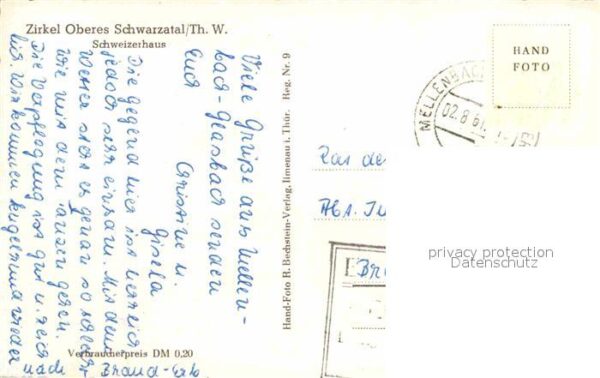 Zirkel Oberes Schwarzatal/Th. W.
Schweizerhaus
Viele Grüße aus Mellen-
bach-Glasbach senden
Euch
Christine u.
Gisela
Die Gegend hier ist herrlich
jedoch sehr einsam. Mit dem
Wetter sieht es genau so schlecht
wie mit dem Tanzen gehen.
Die Verpflegung ist gut u. reich
lich wir kommen kugelrund wieder
nach Brand-Erb.
Verbraucherpreis DM 0,20
Hand-Foto R. Bechstein-Verlag, Ilmenau i. Thür. Reg. Nr. 9
HAND
FOTO
MELLENBACH
02.8.61
Rat de
Abt. In
Br
privacy protection
Datenschutz